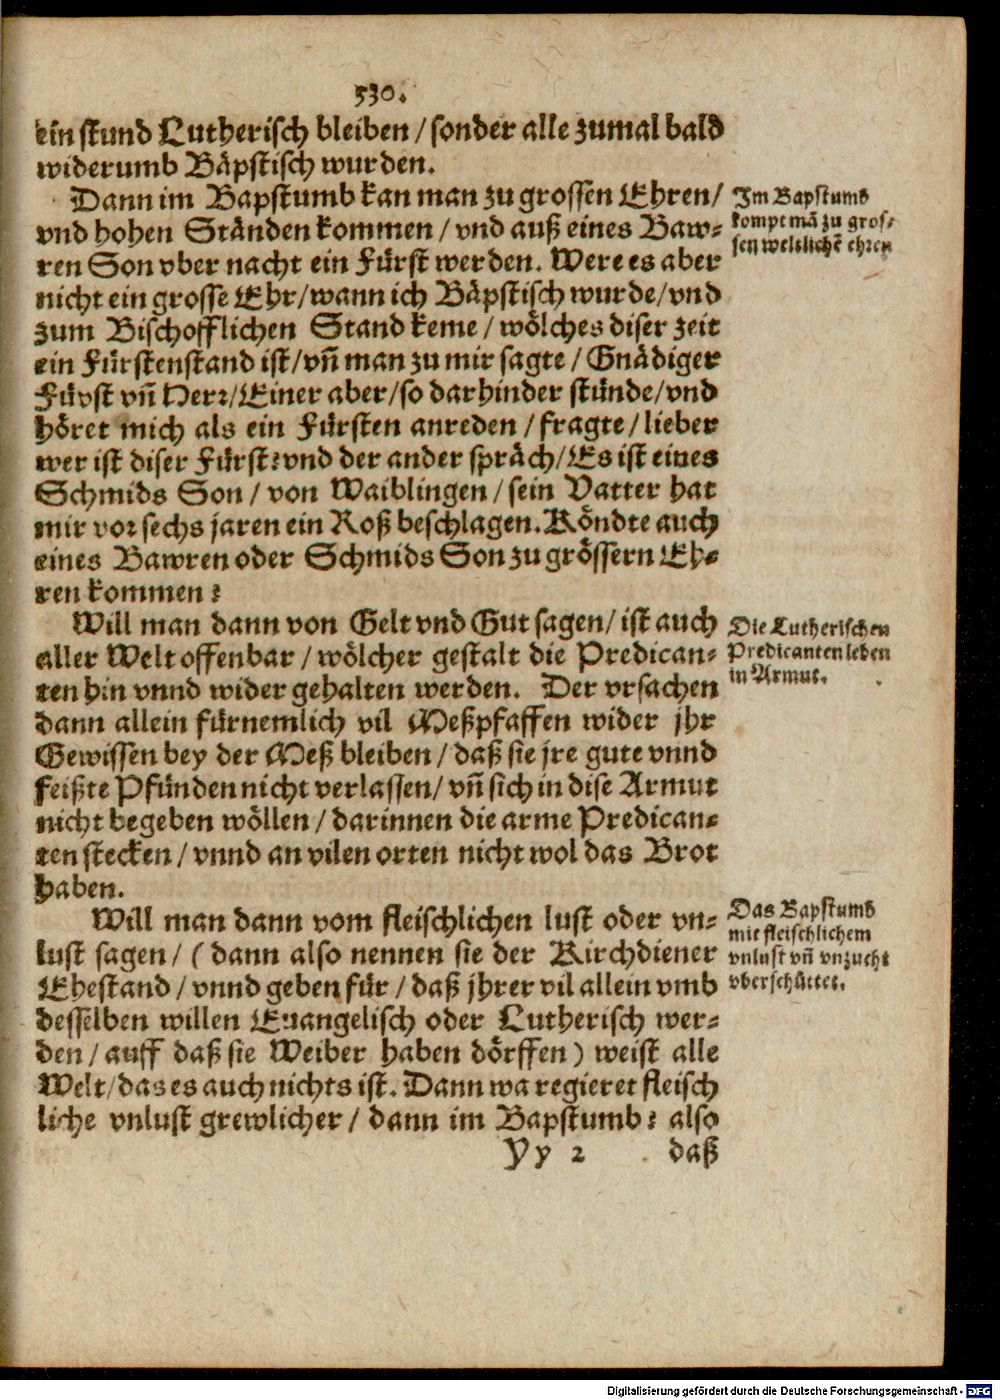 530.
ein stund Lutherisch bleiben / sonder alle zumal bald
widerumb Bäpstisch wurden.
Dann im Bapstumb kan man zu grossen Ehren /
vnd hohen Ständen kommen / vnd auß eines Baw-
ren Son vber nacht ein Fürst werden. Were es aber
nicht ein grosse Ehr / wann ich Bäpstisch wurde / vnd
zum Bischofflichen Stand keme / wölches diser zeit
ein Fürstenstand ist / vñ man zu mir sagte / Gnädiger
Fürst vñ Herr / Einer aber / so darhinder stünde / vnd
höret mich als ein Fürsten anreden / fragte / lieber
wer ist diser Fürst? vnd der ander spräch / Es ist eines
Schmids Son / von Waiblingen / sein Vatter hat
mir vor sechs jaren ein Roß beschlagen. Köndte auch
eines Bawren oder Schmids Son zu grössern Eh-
ren kommen?
Im Bapstumb
kompt mā zu gros-
sen weltlichē ehren
Will man dann von Gelt vnd Gut sagen / ist auch
aller Welt offenbar / wölcher gestalt die Predican-
ten hin vnnd wider gehalten werden. Der vrsachen
dann allein fürnemlich vil Meßpfaffen wider jhr
Gewissen bey der Meß bleiben / daß sie jre gute vnnd
feißte Pfründen nicht verlassen / vñ sich in dise Armut
nicht begeben wöllen / darinnen die arme Predican-
ten stecken / vnnd an vilen orten nicht wol das Brot
haben.
Die Lutherischen
Predicanten leben
in Armut.
Will man dann vom fleischlichen lust oder vn-
lust sagen / ( dann also nennen sie der Kirchdiener
Ehestand / vnnd geben für / daß jhrer vil allein vmb
desselben willen Euangelisch oder Lutherisch wer-
den / auff daß sie Weiber haben dörffen ) weist alle
Welt / das es auch nichts ist. Dann wa regieret fleisch
liche vnlust grewlicher / dann im Bapstumb? also
Das Bapstumb
mit fleischlichem
vnlust vñ vnzucht
vberschüttet.
Yy 2 daß
Digitalisierung gefördert durch die Deutsche Forschungsgemeinschaft - DFG